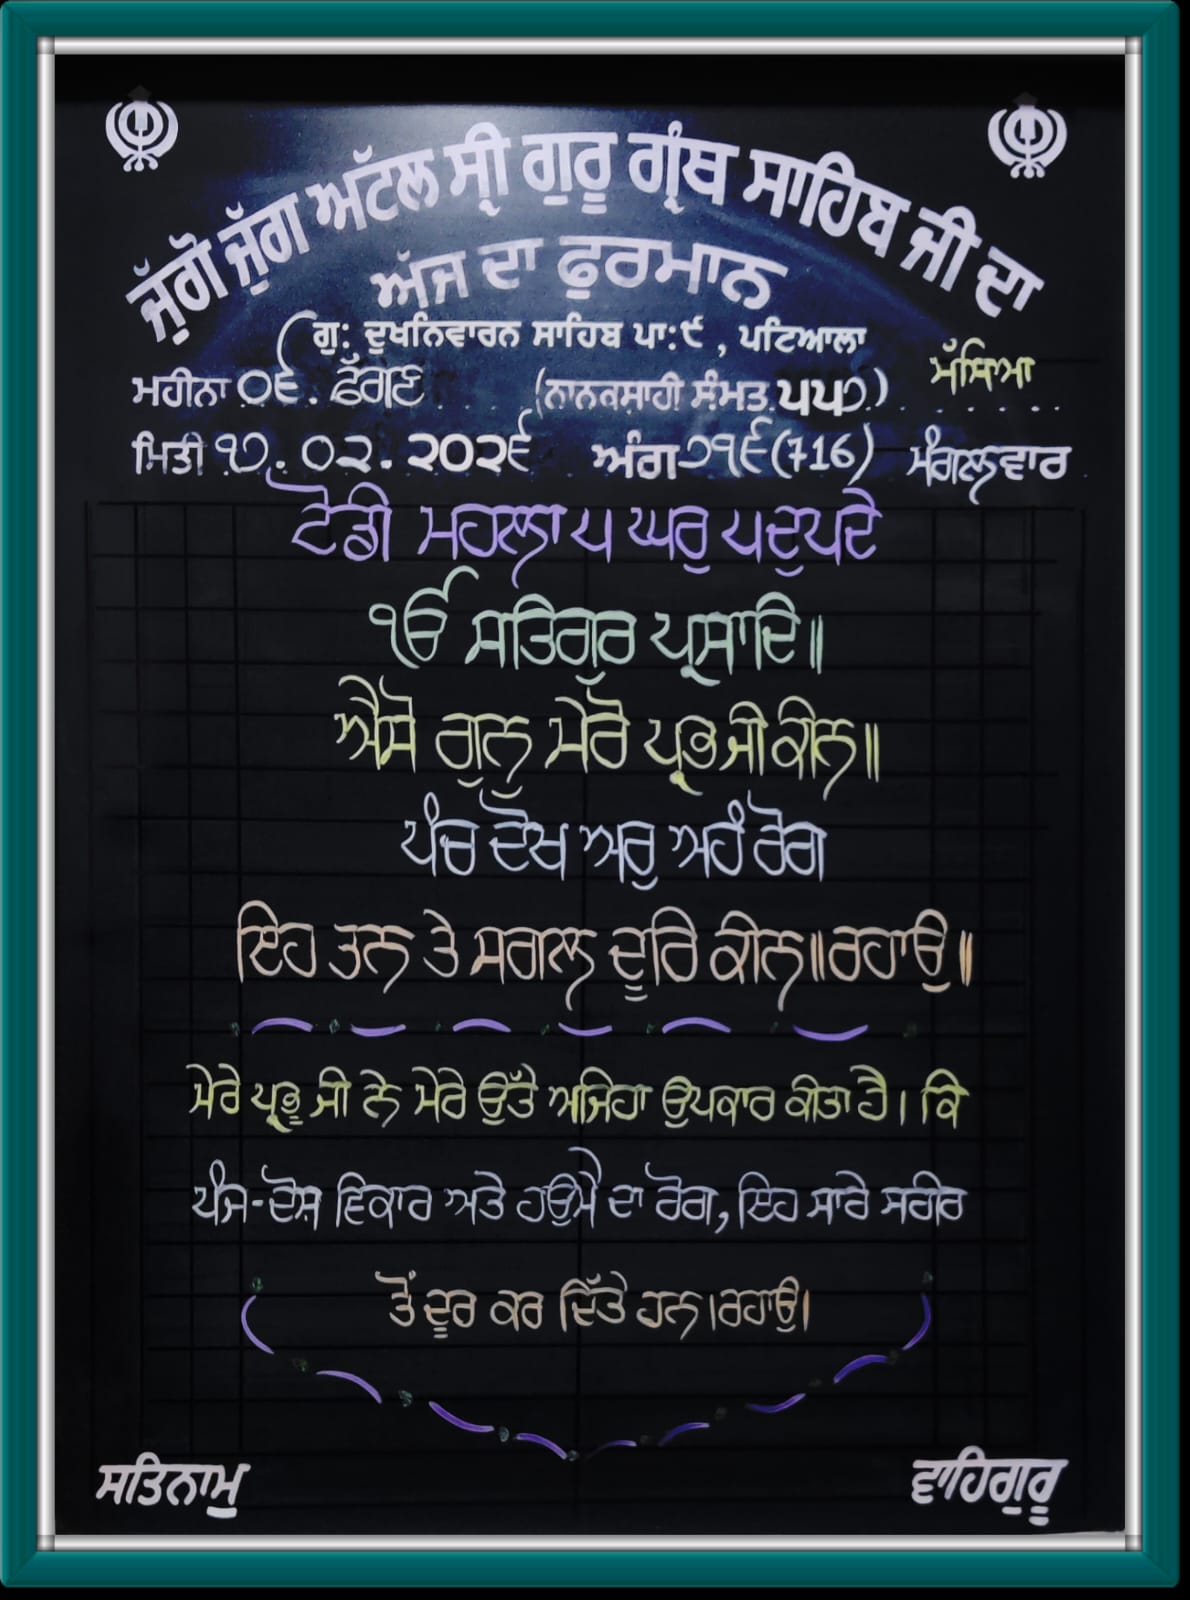 ਜੁੱਗੋ ਜੁੱਗ ਅਟੱਲ ਸ੍ਰੀ ਗੁਰੂ ਗ੍ਰੰਥ ਸਾਹਿਬ ਜੀ ਦਾ
ਅੱਜ ਦਾ ਫੁਰਮਾਨ
ਗੁ: ਦੁਖਨਿਵਾਰਨ ਸਾਹਿਬ ਪਾ:੯ , ਪਟਿਆਲਾ
ਮੱਸਿਆ
ਮਹੀਨਾ ੦੬. ਫੱਗਣ (ਨਾਨਕਸ਼ਾਹੀ ਸੰਮਤ ੫੫੭)
ਮਿਤੀ ੧੭.੦੨.੨੦੨੬ ਅੰਗ ੭੧੬(716) ਮੰਗਲਵਾਰ
ਟੋਡੀ ਮਹਲਾ ੫ ਘਰੁ ੫ ਦੁਪਦੇ
ੴ ਸਤਿਗੁਰ ਪ੍ਰਸਾਦਿ॥
ਐਸੋ ਗੁਨੁ ਮੇਰੋ ਪ੍ਰਭ ਜੀ ਕੀਨ॥
ਪੰਚ ਦੋਖ ਅਰੁ ਅਹੰ ਰੋਗ
ਇਹ ਤਨ ਤੇ ਸਗਲ ਦੂਰਿ ਕੀਨ॥ਰਹਾਉ॥
ਮੇਰੇ ਪ੍ਰਭੂ ਜੀ ਨੇ ਮੇਰੇ ਉੱਤੇ ਅਜਿਹਾ ਉਪਕਾਰ ਕੀਤਾ ਹੈ। ਕਿ
ਪੰਜ-ਦੋਸ਼ ਵਿਕਾਰ ਅਤੇ ਹਉਮੈ ਦਾ ਰੋਗ, ਇਹ ਸਾਰੇ ਸਰੀਰ
ਤੋਂ ਦੂਰ ਕਰ ਦਿੱਤੇ ਹਨ।ਰਹਾਉ।
ਸਤਿਨਾਮੁ ਵਾਹਿਗੁਰੂ